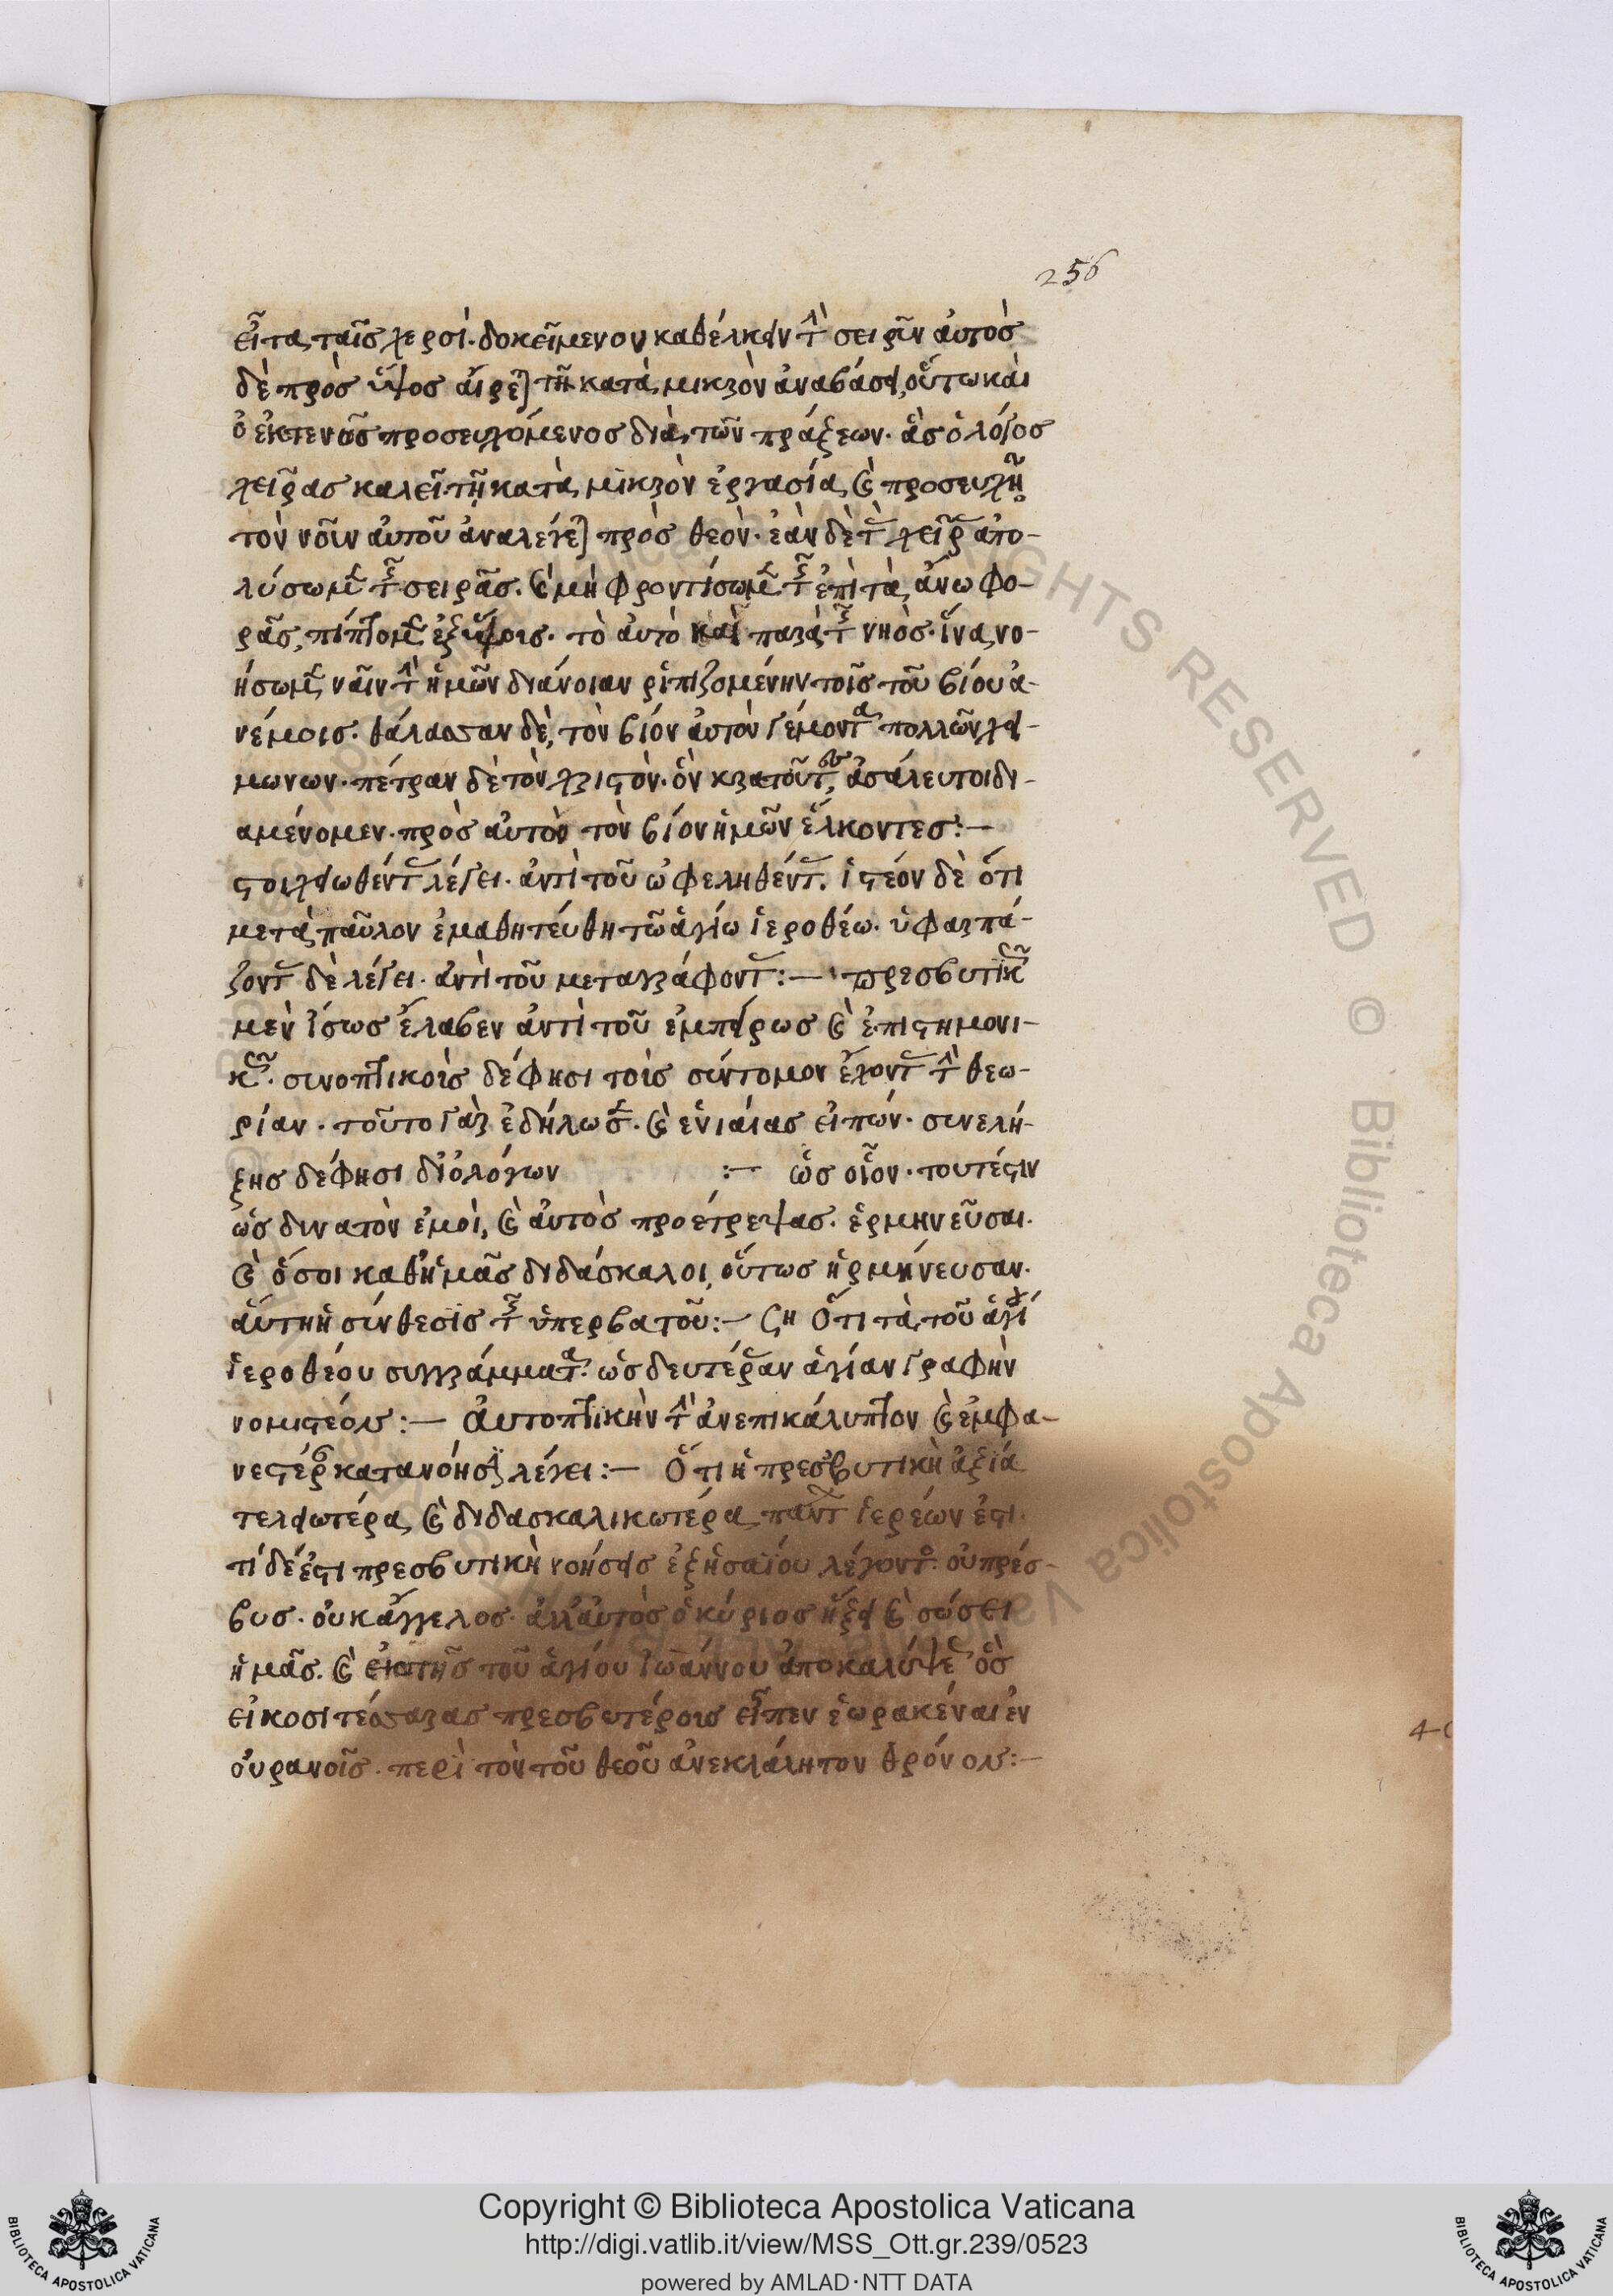 256
εἶτα ταῖς χερσί. δοκεῖ μενον καθέλκειν τὴν σειρὰν αὐτὸς
δὲ πρὸς ὕψος αἴρεται τῆ κατὰ μικρὸν ἀναβάσει, οὕτω καὶ
ὁ ἐκτενῶς προσευχόμενος διὰ τῶν πράξεων. ἃς ὁ λόγος
χεῖρας καλεῖ. τῇ κατὰ μικρὸν ἐργασία καὶ προσευχῇ
τὸν νοῦν αὐτοῦ ἀναλέγεται πρὸς θεόν. ἐὰν δὲ τὰς χεῖρας ἀπο-
λύσωμεν τῆς σειρᾶς. καὶ μὴ φροντίσωμεν τῆς ἐπὶ τὰ ἄνω φο-
ρᾶς, πίπτομεν ἐξ ὕψοις. τὸ αὐτὸ καὶ παρὰ τῆς νηὸς. ἵνα νο-
ήσωμεν, ναῦν τὴν ἡμῶν διάνοιαν ῥιπιζομένην τοῖς τοῦ βίου ἀ-
νέμοις. θάλασσαν δὲ, τὸν βίον αὐτὸν γέμοντα πολλῶν χει-
μώνων. πέτραν δὲ τὸν χριστὸν. ὃν κρατοῦντες, ἀσάλευτοι δι-
αμένομεν. πρὸς αὐτὸν τὸν βίον ἡμῶν ἕλκοντες:—
στοιχειωθέντας λέγει. ἀντὶ τοῦ ὠφεληθέντας. ἰστέον δὲ ὅτι
μετὰ παῦλον ἐμαθητεύθη τῶ ἁγίω ἱεροθέω. ὑφαρπά-
ζοντας δὲ λέγει. ἀντὶ τοῦ μεταγράφοντας:— πρεσβυτικῶς
μὲν ἴσως ἔλαβεν ἀντὶ τοῦ ἐμπείρως καὶ ἐπιστημονι-
κῶς. συνοπτικοῖς δέ φησι τοῖς σύντομον ἔχοντας τὴν θεω-
ρίαν. τοῦτο γὰρ ἐδήλωσεν. καὶ ἑνιαίας εἰπών. συνελή-
ξης δέ φησι δι' ὀλόγων :— ὡς οἷον. τουτέστιν
ὡς δυνατὸν ἐμοὶ, καὶ αὐτὸς προέτρεψας. ἑρμηνεῦσαι.
καὶ ὅσοι καθ' ἡμᾶς διδάσκαλοι, οὕτως ἡρμήνευσαν.
αὕτη ἡ σύνθεσις τῆς ὑπερβατοῦ:— ση Ὅτι τὰ τοῦ ἁγίου
ἱεροθέου συγγράμματα. ὡς δευτέραν ἁγίαν γραφὴν
νομιστέον:— Αὐτοπτικὴν τὴν ἀνεπικάλυπτον καὶ ἐμφα-
νεστέραν κατανόησιν λέγει:— Ὅτι ἡ πρεσβυτικὴ ἀξία
τελειωτέρα καὶ διδασκαλικωτέρα πάντων ἱερέων ἐστι.
τί δέ ἐστι πρεσβυτικὴ νοήσεις ἐξ ἡσαΐου λέγοντος. οὐ πρέσ-
βυς. οὐκ ἄγγελος. ἀλλ' αὐτὸς ὁ κύριος ἥξει καὶ σώσει
ἡμᾶς. καὶ ἐκ τῆς τοῦ ἁγίου ἰωάννου ἀποκαλύψεως ὃς
εἰκοσιτέσσαρας πρεσβυτέροις εἶπεν ἑωρακέναι ἐν
οὐρανοῖς. περὶ τὸν τοῦ θεοῦ ἀνεκλάλητον θρόνον:—
Copyright © Biblioteca Apostolica Vaticana
http://digi.vatlib.it/view/MSS_Ott.gr.239/0523
powered by AMLAD·NTT DATA
BIBLIOTECA APOSTOLICA VATICANA
BIBLIOTECA APOSTOLICA VATICANA